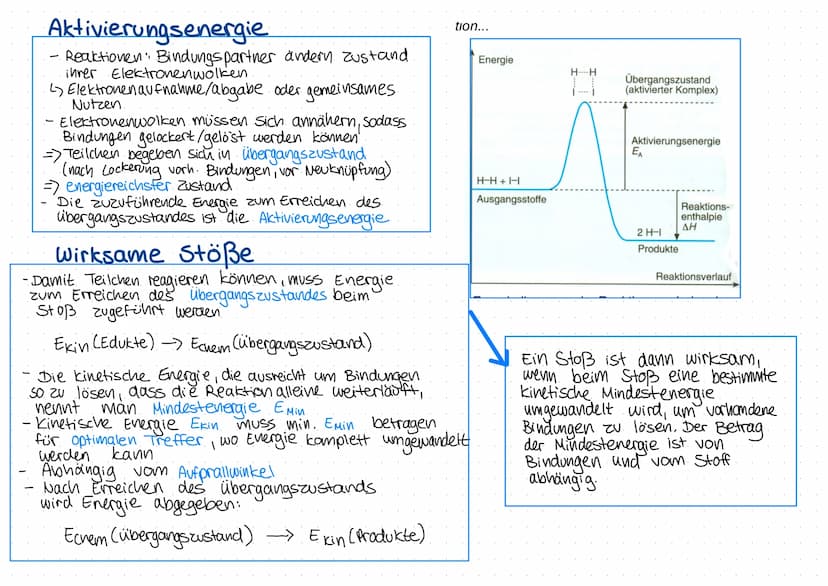 Aktivierungsenergie
- Reaktionen: Bindungspartner ändern Zustand
ihrer Elektronenwolken
↳ Elektronenaufnahme/abgabe oder gemeinsames
Nutzen
- Elektronenwolken müssen sich annähern, sodass
Bindungen gelockert/gelöst werden können
=> Teilchen begeben sich in Übergangszustand
(nach Lockerung vorh. Bindungen, vor Neuknüpfung)
=> energiereichster Zustand
- Die zuzuführende Energie zum Erreichen des
Übergangszustandes ist die Aktivierungsenergie
tion...
Energie
H----H
I----I
Übergangszustand
(aktivierter Komplex)
Aktivierungsenergie
E_A
H–H + I–I
Ausgangsstoffe
Reaktions-
enthalpie
ΔH
2 H–I
Produkte
Reaktionsverlauf
Wirksame Stöße
- Damit Teilchen reagieren können, muss Energie
zum Erreichen des Übergangszustandes beim
Stoß zugeführt werden
Ekin (Edukte) → Echem (Übergangszustand)
- Die kinetische Energie, die ausreicht um Bindungen
so zu lösen, dass die Reaktion alleine weiterläuft,
nennt man Mindestenergie EMin
- Kinetische Energie Ekin muss min. EMin betragen
für optimalen Treffer, wo Energie komplett umgewandelt
werden kann
- Abhängig vom Aufprallwinkel
- Nach Erreichen des Übergangszustands
wird Energie abgegeben:
Echem (Übergangszustand) → Ekin (Produkte)
Ein Stoß ist dann wirksam,
wenn beim Stoß eine bestimmte
kinetische Mindestenergie
umgewandelt wird, um vorhandene
Bindungen zu lösen. Der Betrag
der Mindestenergie ist von
Bindungen und vom Stoff
abhängig.